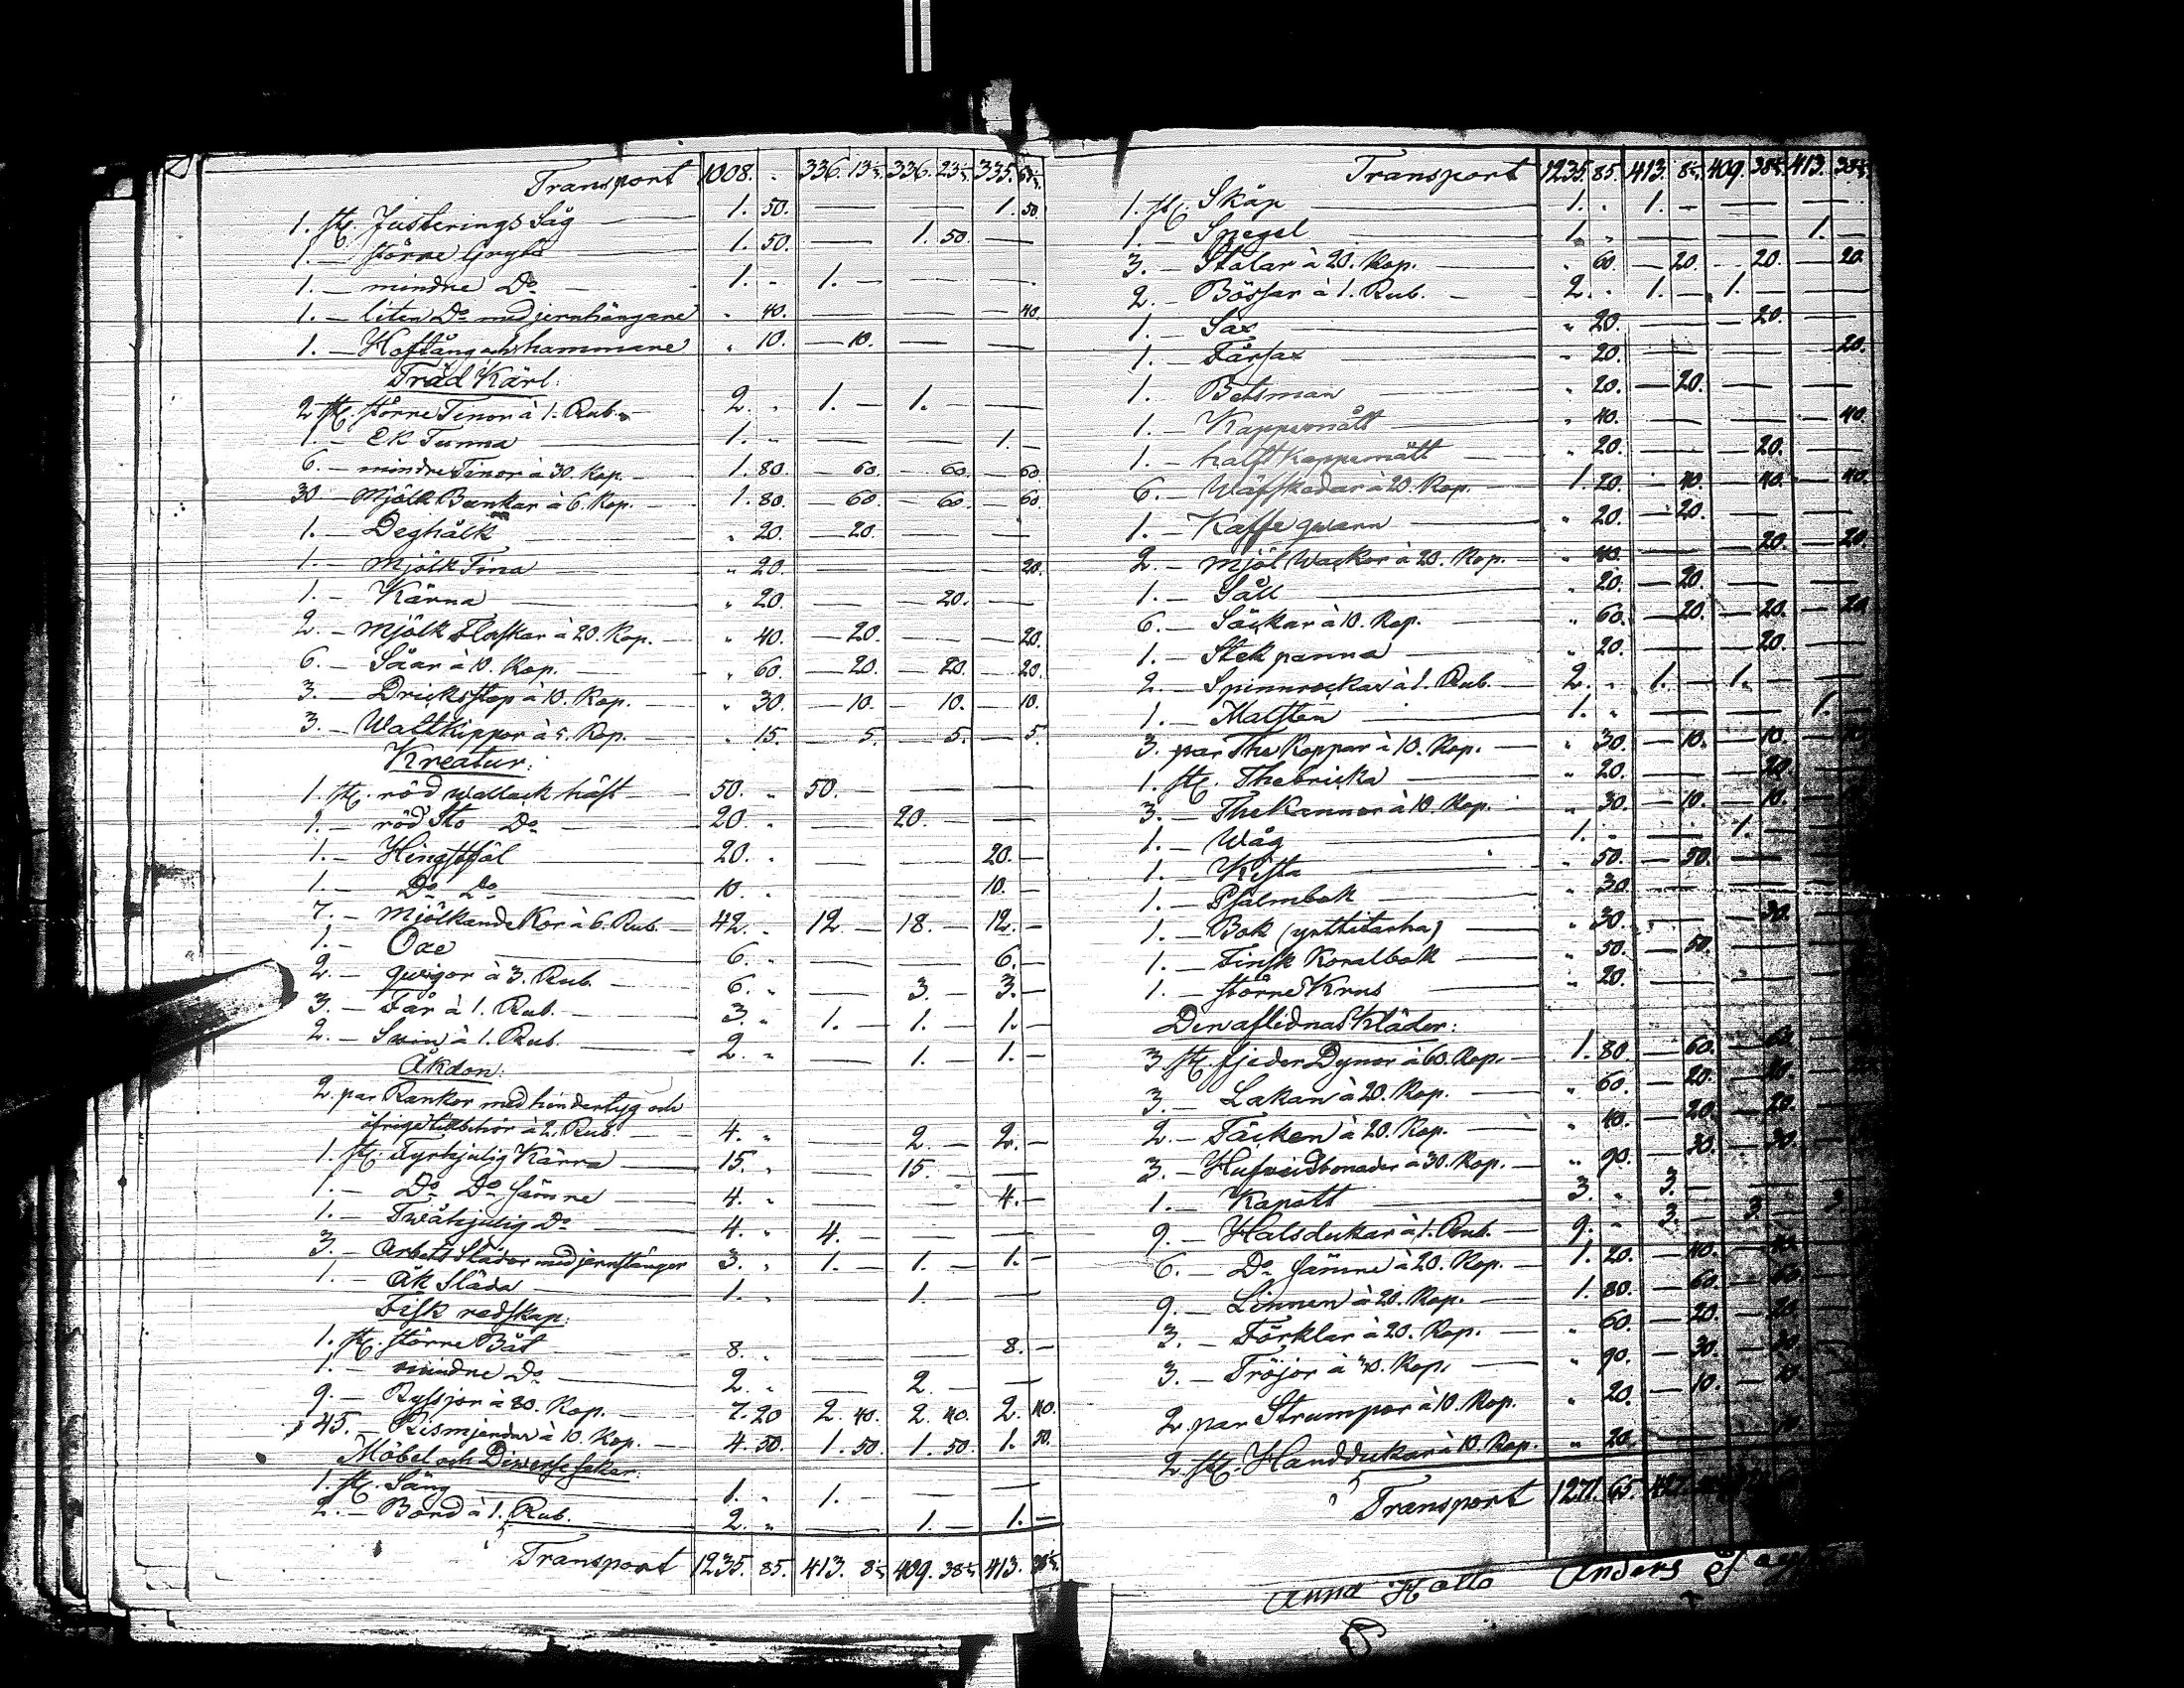 Transport 1008. " 336. 13½. 336. 23½. 335.
1. st. Justerings Såg — 1. 50. — — 1. 50
1. — större Gryta — 1. 50. — 1. 50. —
1. — mindre Do — 1. " 1. — — —
1. — liten Do med jernhängare " 40. — — 40.
1. — Hoftång och hammare " 10. — 10. — —
Träd Kärl:
2 st. större Tinor à 1. Rub. — 2. " 1. — 1. —
1. — Ek Tunna — 1. " — — 1. —
6. — mindre Tinor à 30. Kop. — 1. 80. — 60. — 60. — 60.
30 — Mjölk Bunkar à 6. Kop. — 1. 80. — 60. — 60. — 60.
1. — Deghålk — " 20. — 20. — —
1. — Mjölk Tina — " 20. — — 20.
1. — Kärna — " 20. — 20. —
2. — Mjölk Flaskar à 20. Kop. — " 40. — 20. — — 20.
6. — Såar à 10. Kop. — " 60. — 20. — 20. — 20.
3. — Dricksstop à 10. Kop. — " 30. — 10. — 10. — 10.
3. — Wattkippor à 5. Kop. — " 15. — 5. — 5. — 5.
Kreatur:
1. st. röd wallack häst — 50. " 50. — — —
1. — röd Sto Do — 20. " — 20. — —
1. — Hingstföl — 20. " — — 20. —
1. — Do Do — 10. " — — 10. —
7. — Mjölkande Kor à 6. Rub. — 42. " 12. — 18. — 12. —
1. — Oxe — 6. " — — 6. —
2. — quigor à 3. Rub. — 6. " — 3. — 3. —
3. — Får à 1. Rub. — 3. " 1. — 1. — 1. —
2. — Swin à 1. Rub. — 2. " — 1. — 1. —
Åkdon:
2. par Rankor med hindertyg och
öfrige tillbehör à 2. Rub. — 4. " — 2. — 2. —
1. st. Fyrhjulig Kärra — 15. " — 15. — —
1. — Do Do sämre — 4. " — — 4. —
1. — Twåhjulig Do — 4. " 4. — — —
3. — Arbets Slädar med jernstänger 3. " 1. — 1. — 1. —
1. — Åk Släda — 1. " — 1. — —
Fisk redskap:
1. st. större Båt — 8. " — — 8. —
1. — mindre Do — 2. " — 2. — —
9. — Ryssjor à 80. Kop. — 7. 20 2. 40. 2. 40. 2. 40.
45. — Rismjerdar à 10. Kop. — 4. 50. 1. 50. 1. 50. 1. 50.
Möbel och Diwerse saker:
1. st. Säng — 1. " 1. — — —
2. — Bord à 1. Rub. — 2. " — 1. — 1. —
Transport 1235. 85. 413. 8½ 409. 38½ 413. 38½
Transport 1235. 85. 413. 8½. 409. 38½ 413. 38½
1. st. Skåp — 1. " 1. — — —
1. — Spegel — 1. " — — 1. —
3. — Stolar à 20. Kop. — " 60. — 20. — 20. — 20.
2. — Bössar à 1. Rub. — 2. " 1. — 1. — —
1. — Sax — " 20. — — 20. —
1. — Fårsax — " 20. — — 20.
1. Betsman — " 20. — 20. — —
1. — Kappemått — " 40. — — 40.
1. — halft Kappemått — " 20. — — 20. —
6. — Wäfskedar à 20. Kop. — 1. 20. — 40. — 40. — 40.
1. — Kaffe qwarn — " 20. — 20. — —
2. — Mjöl Wackor à 20. Kop. — " 40. — — 20. — 20.
1. — Såll — " 20. — 20. — —
6. — Säckar à 10. Kop. — " 60. — 20. — 20. — 20
1. — Stek panna — " 20. — — 20. —
2. — Spinnrockar à 1. Rub. — 2. " 1. — 1. — —
1. — Malsten — 1. " — — 1. —
3. par The Koppar à 10. Kop. — " 30. — 10. — 10. —
1. st. Thebricka — " 20. — — 20. —
3. — The Kannor à 10. Kop. — " 30. — 10. — 10. —
1. — Wåg — 1. " — 1. — —
1. — Kista — " 50. — 50. — —
1. — Psalmbok — " 30. —
1. — Bok (yrttitarha) — " 30. — — 30. —
1. — Finsk Koralbok — " 50. — 50. — —
1. — större Krus — " 20. —
Den aflidnas Kläder:
3 st. fjeder Dynor à 60. Kop. — 1. 80. — 60. — 60.
3. — Lakan à 20. Kop. — " 60. — 20. — 20.
2. — Täcken à 20. Kop. — " 40. — 20. — 20.
3. — Hufvudbonader à 30. Kop. — " 90. — 30. — 30.
1. — Kapott — 3. " 3. —
9. — Halsdukar à 1. Rub. — 9. " 3. — 3. — 3
6. — Do sämre à 20. Kop. — 1. 20. — 40. — 40.
9. — Linnen à 20. Kop. — 1. 80. — 60. — 60
3. — Förklär à 20. Kop. — " 60. — 20. — 20
3. — Tröjor à 30. Kop. — " 90. — 30. — 30
2. par Strumpor à 10. Kop. " 20. — 10. — 10
2. st. Handdukar à 10 Kop. " 20. — 10.
Transport 1271. 65. 427.
Anna Anders